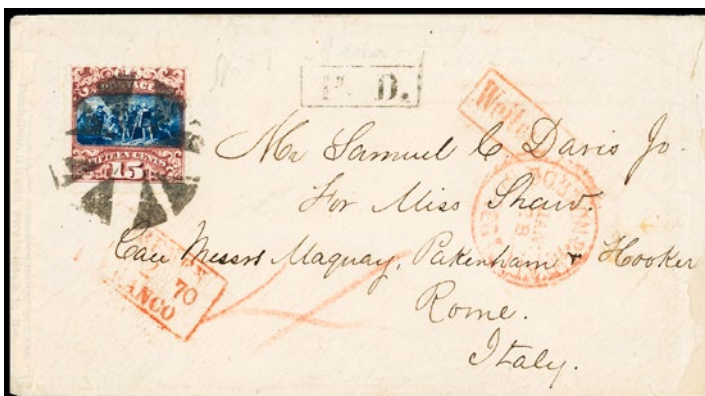 POSTAGE
FIFTEEN CENTS
15
P. D.
Mr Samuel C Davis Jr.
For Miss Shaw.
Care Messrs Maquay, Pakenham & Hooker
Rome.
Italy.
70
FRANCO